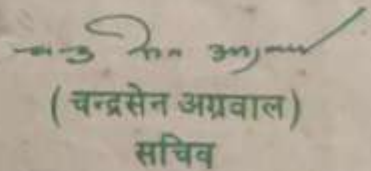 ( चन्द्रसेन अग्रवाल )
सचिव